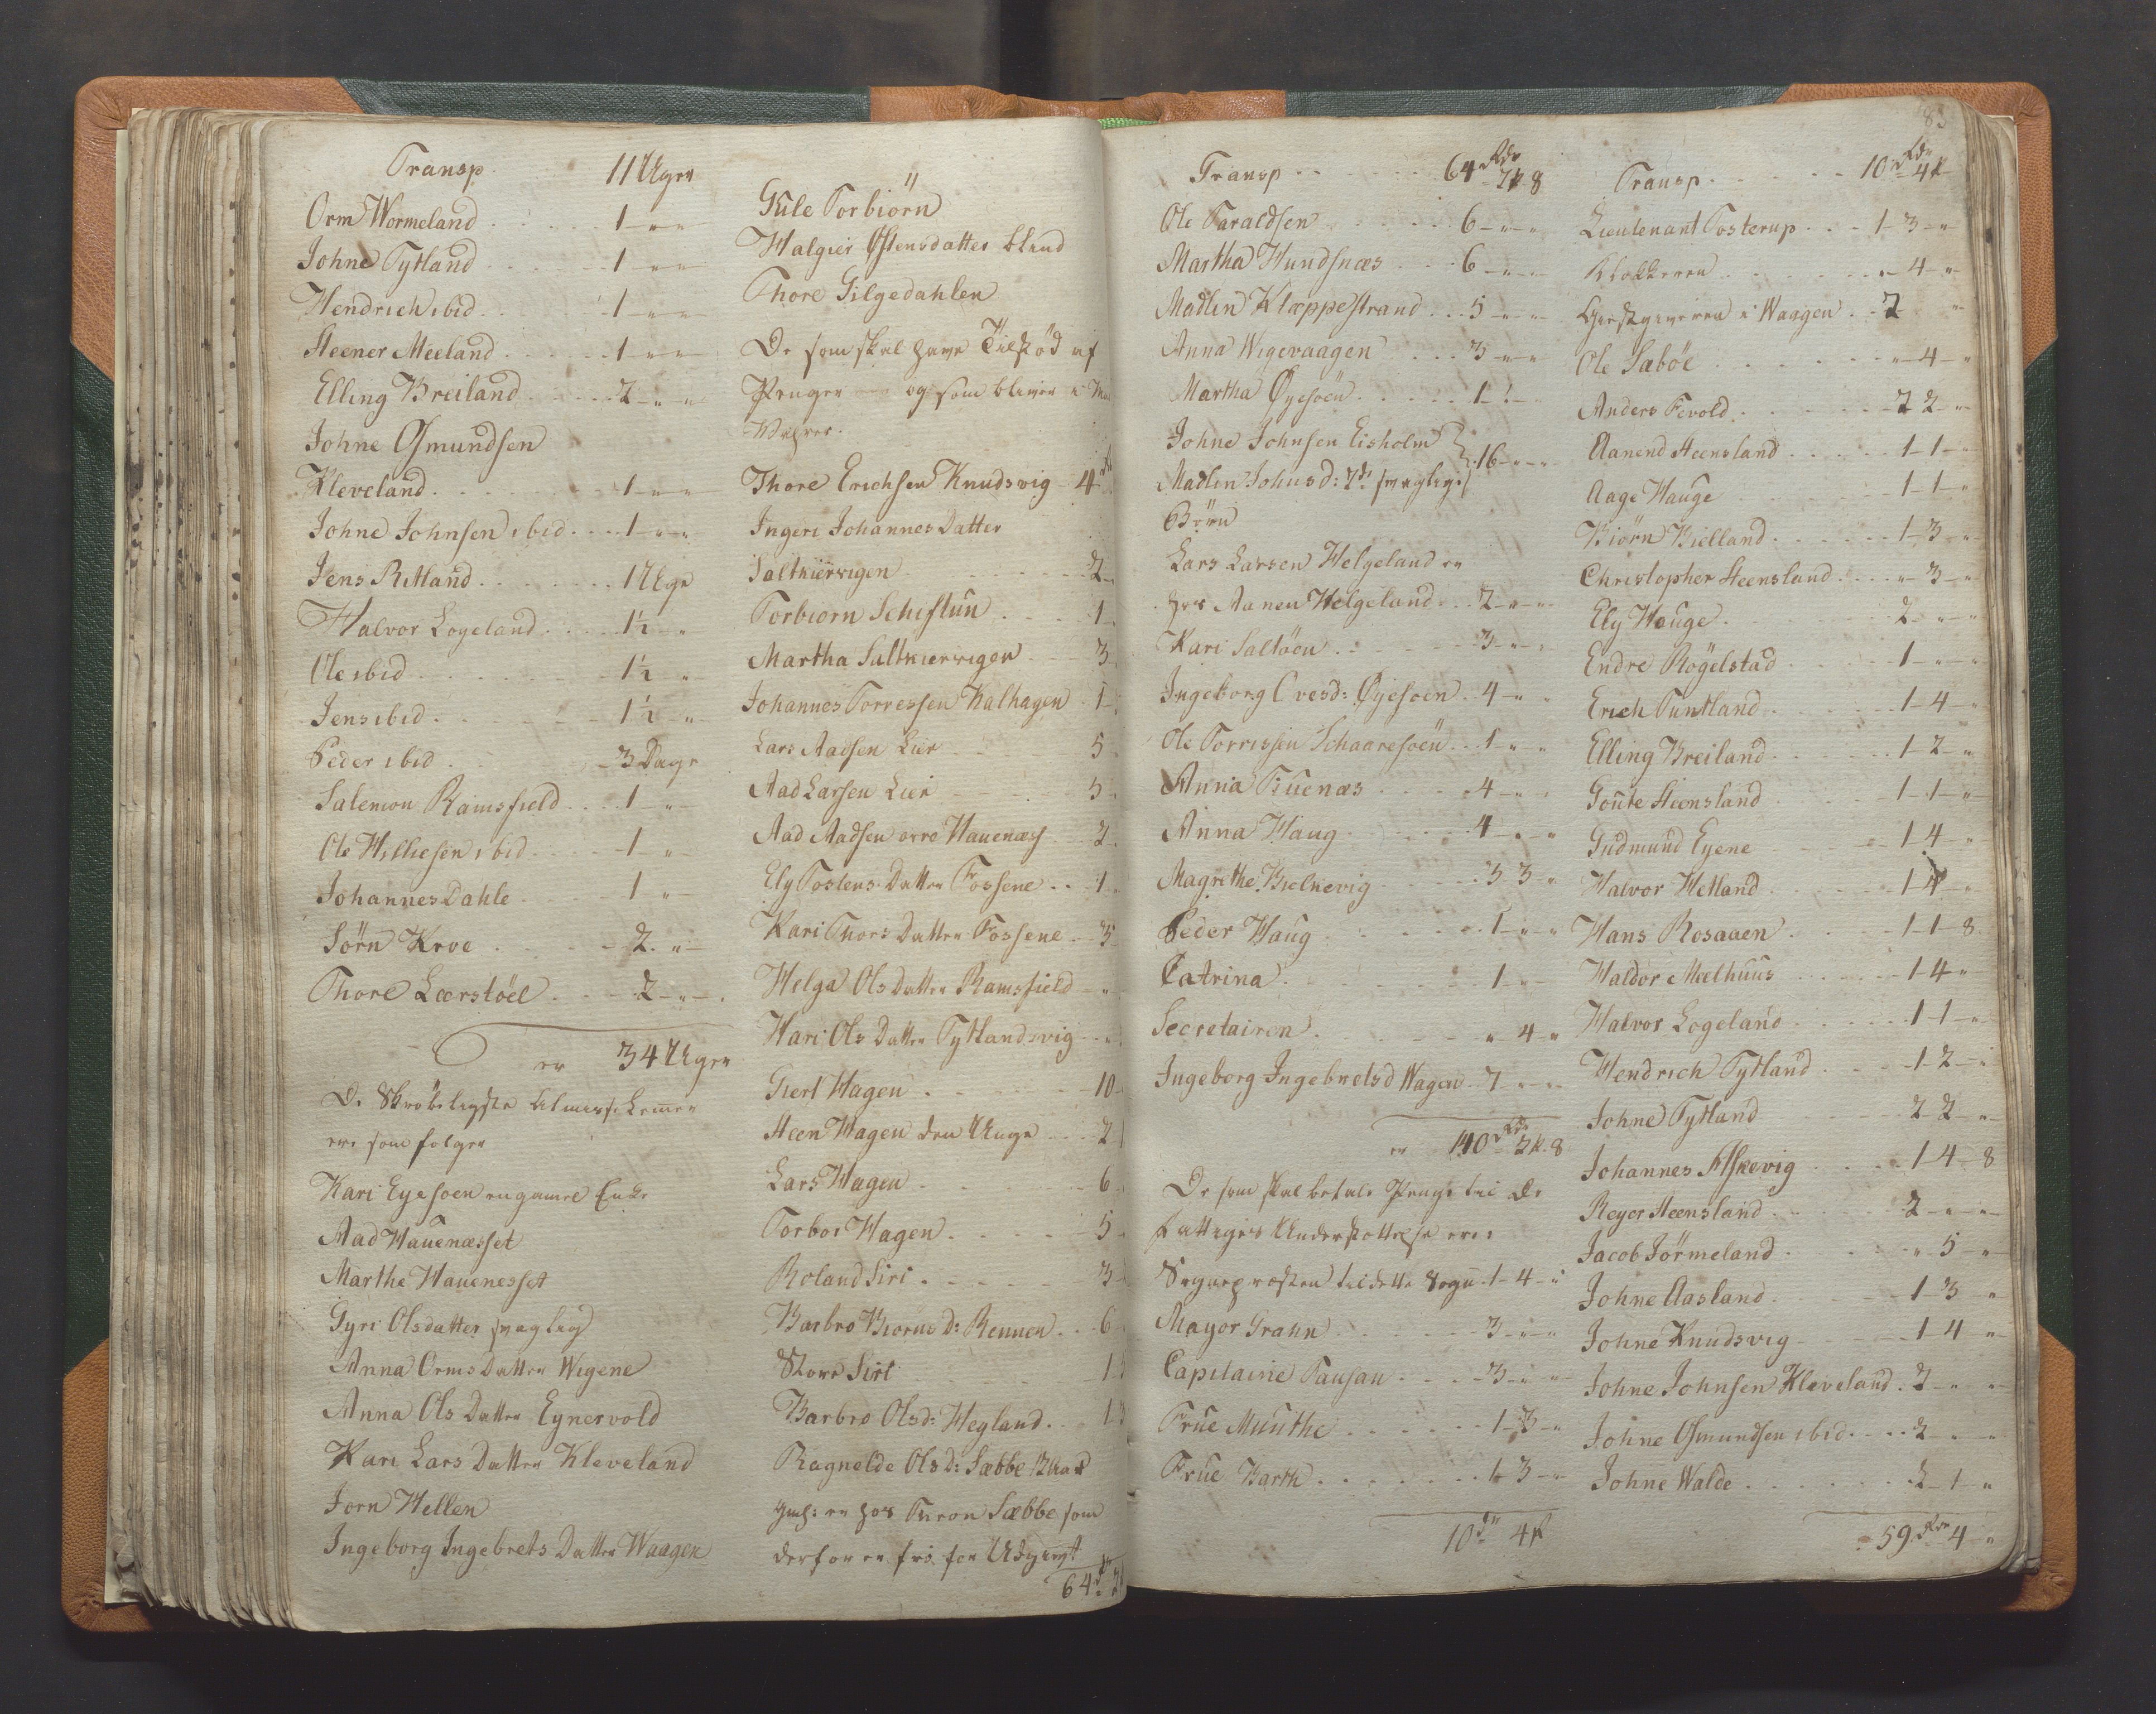 Transp. 11 Uger
Orm Wormeland . . . . 1 - " "
Johne Tytland . . . . 1 - " "
Hendrich ibid . . . . 1 - " "
Steener Meeland . . . . 1 - " "
Elling Breiland . . . . 2 - " "
Johne Osmundsen
Kleveland . . . . 1 - " "
Johne Johnsen ibid . . . . 1 - " "
Jens Ritland . . . . 1 Uge
Halvor Logeland . . . . 1½ "
Ole ibid . . . . 1½ "
Jens ibid . . . . 1½ "
Peder ibid . . . . 3 Dage
Salemon Ramsfield . . . 1 - "
Ole Willesen ibid . . . . 1 - "
Johannes Dahle . . . . 1 - "
Sörn Kroe . . . . 2 - "
Thore Leerstöel . . . . 2 - " -
er 34 Uger
De Skröbeligste Almisse Lemer
ere som folger
Kari Eyesoen en gamel Enke
Aad Hauenæsset
Marthe Hauenesset
Gyri Olsdatter svaglig
Anna Orms Datter Wigene
Anna Ols Datter Eynervold
Kari Lars Datter Kleveland
Jorn Hellen
Ingeborg Ingebrets Datter Waagen
Gule Torbiörn
Walgier Østensdatter blind
Thore Gilgedahlen
De som skal have Tilskød af
Penger og som bliver i
Thore Erichsen Knudsvig 4
Ingeri Johannes Datter
Saltkierrigen 2
Torbiorn Schistun . . . 1
Martha Saltkierrigen 3
Johannes Torressen Kalhagen 1
Lars Aadsen Lier 5
Aad Larsen Lier 5
Aad Aadsen Hauenæs 2
Ely Tostens Datter Fossene . . 1
Kari Thors Datter Fossene 3
Helga Ols Datter Ramsfield "
Kari Ols Datter Tytlandsvig "
Giert Hagen . . . . 10
Steen Hagen den Unge 2
Lars Hagen . . . . 6
Torbor Hagen . . . . 5
Roland Siri . . . . 3
Barbro Biorns D: Rennen . . 6
Store Siri 1
Barbro Olsd: Hegland . . 1
Ragnelde Ols D: Sæbbe
er hos Tron Sæbbe som
derfor er fri for Udgivt
64
83
Transp . . . . 64 Rdr 2 ₻ 8
Ole Taraldsen . . . . 6 - " "
Martha Hundsnæs . . . 6 - " "
Madlen Klæppestrand . . . 5 - " "
Anna Wigevaagen . . . 3 - " "
Martha Øyesoen . . . . 1 - 1 -
Johne Johnsen Eisholm } 16 - " "
Madlen Johnsd: 2de svaglige
Børn
Lars Larsen Helgeland er
hos Aanen Helgeland . . 2 - " "
Kari Saltöen . . . . 3 - " "
Ingeborg Ovesd: Øyesoen . 4 - " "
Ole Torrissen Schaaresoen . . 1 - " "
Anna Tuenæs . . . . 4 - " "
Anna Haug . . . . 4 - " "
Magrethe Bielkevig . . . . 3 3 "
Peder Haug . . . . 1 - " "
Catrina . . . . 1 - " -
Secretairen . . . . " 4 "
Ingeborg Ingebretsd Wagen 7 - " "
er 140 Rdr 3 ₻ 8
De som skal betale Penge til de
Fattiges Understøttelse ere:
Sognepresten til dette Sogn 1 - 4 - "
Mayor Grahn . . . . 3 - " "
Capitaine Tausan . . . . 3 - " "
Frue Munthe . . . . 1 - 3 - "
Frue Barth . . . . 1 3 - "
10 Rdr 4 ₻
Transp . . . . 10 Rdr 4 ₻
Lieutenant Tosterup . . . 1 - 3 - "
Klokkeren . . . . " - 4 - "
Giestgiveren i Waagen . . 2 "
Ole Saböe . . . . " - 4 - "
Anders Tevold . . . . 2 2 - "
Aanend Steensland . . . . 1 - 1 - "
Aage Hauge . . . . 1 - 1 - "
Biörn Bielland . . . . 1 - 3 - "
Christopher Steensland . . . " - 3 - "
Ely Hauge . . . . 2 - " - "
Endre Rögelstad . . . . 1 - " - "
Erich Tuntland . . . . 1 - 4 - "
Elling Breiland . . . . 1 - 2 - "
Goute Steensland . . . . 1 - 1 - "
Gudmund Eyene . . . . 1 4 - "
Halvor Hetland . . . . 1 4 - "
Hans Rosaaen . . . . 1 - 1 - 8
Haldor Meelhuus . . . . 1 4 "
Halvor Logeland . . . . 1 - 1 - "
Hendrich Tytland . . . . 1 - 2 - "
Johne Tytland . . . . 2 2 - "
Johannes Askevig . . . . 1 - 4 - 8
Reyer Steensland . . . . 2 - " - "
Jacob Sörmeland . . . . " - 5 - "
Johne Aasland . . . . 1 - 3 - "
Johne Knudsvig . . . . 1 4 - "
Johne Johnsen Kleveland . 2 - " "
Johne Osmundsen ibid . . . . 2 - " "
Johne Walde . . . . 2 - 1 - "
59 Rdr 4 - "